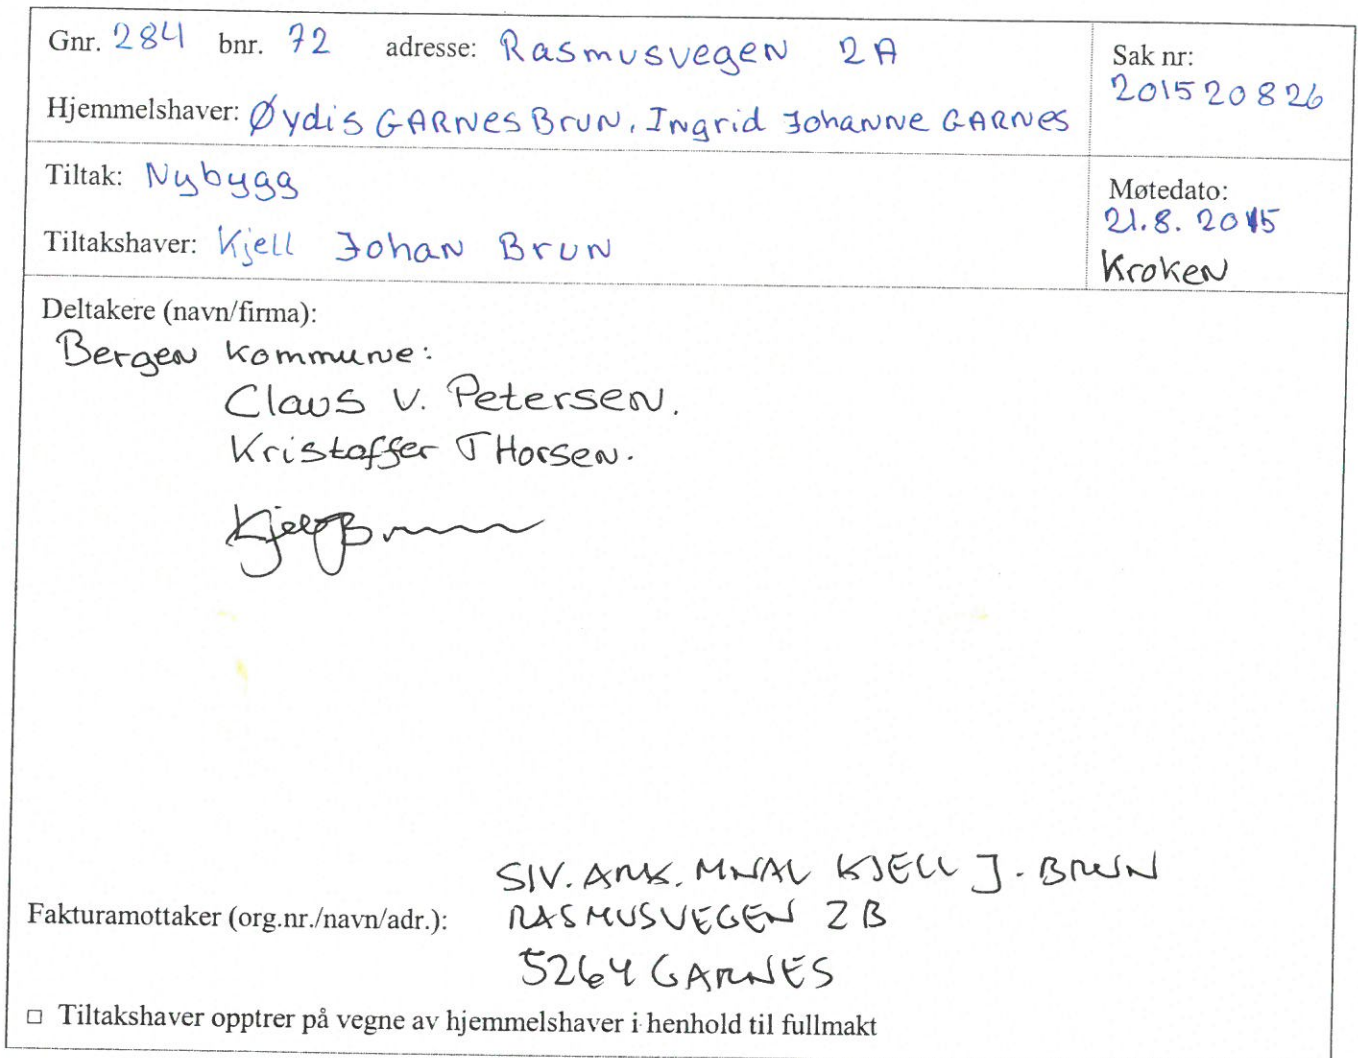 Gnr. 284 bnr. 72 adresse: Rasmusvegen 2A
Hjemmelshaver: Øydis GARNES BRUN, Ingrid Johanne GARNES
Sak nr:
201520826
Tiltak: Nybygg
Tiltakshaver: Kjell Johan Brun
Møtedato:
21.8. 2015
Kroken
Deltakere (navn/firma):
Bergen kommune:
Claus V. Petersen.
Kristoffer THorsen.
Kjell J Brun
SIV. ARK. MNAL KJELL J. BRUN
Fakturamottaker (org.nr./navn/adr.): RASMUSVEGEN 2B
5264 GARNES
□ Tiltakshaver opptrer på vegne av hjemmelshaver i henhold til fullmakt